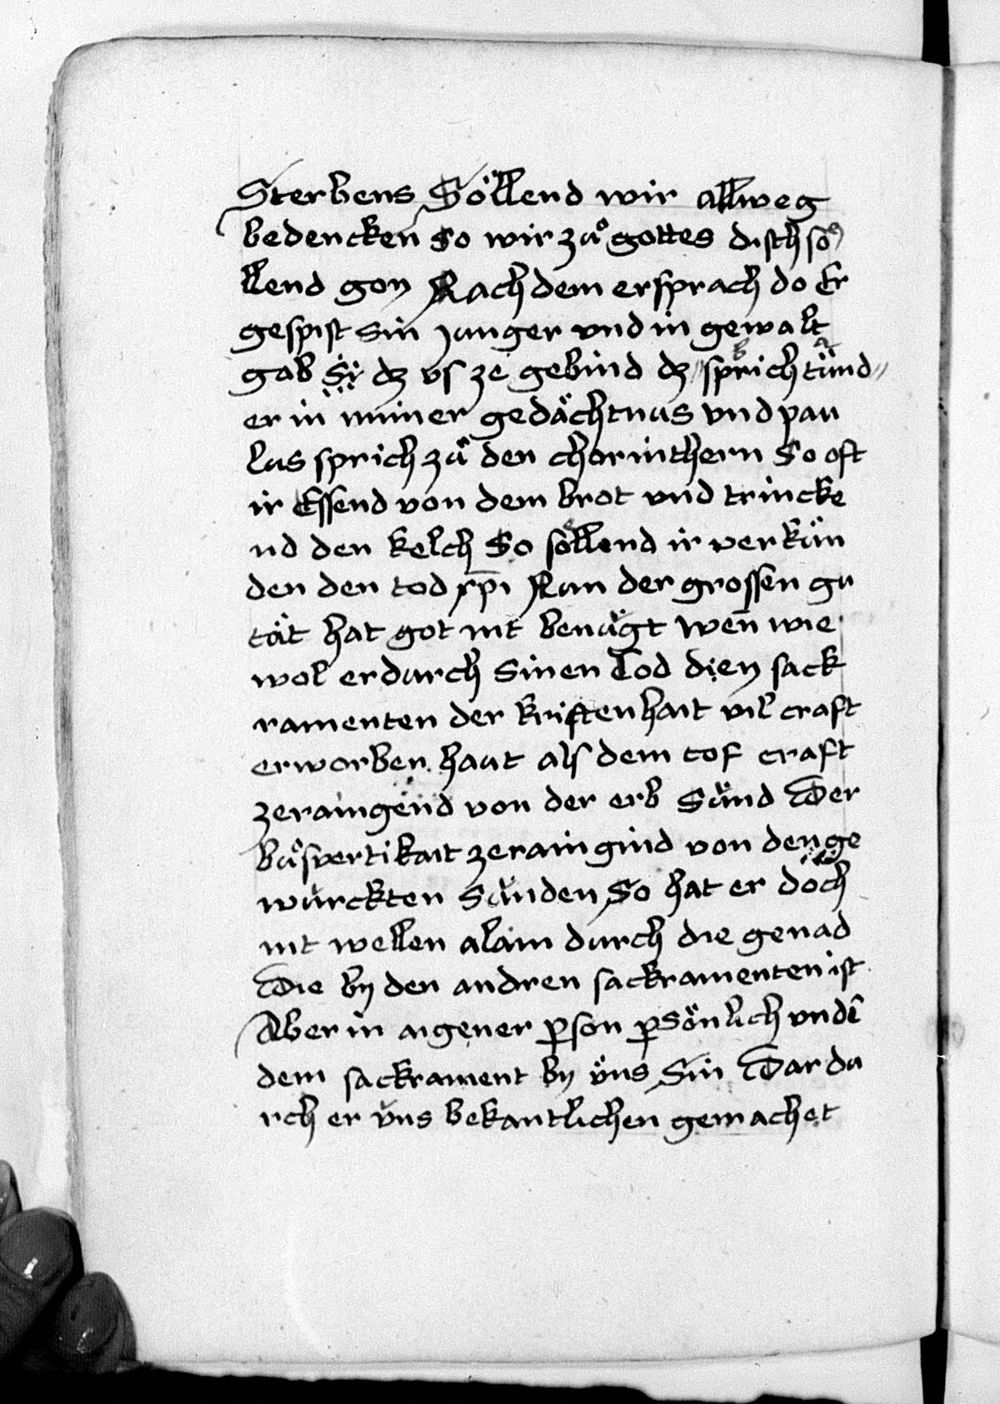 Sterbens Söllend wir allweg
bedencken So wir zuͦ gottes disch sö
llend gon Nach dem er sprach do Er
gespist Sin junger vnd in gewalt
gab Si dz vs ze gebind dz sprich tuͦnd
er in miner gedächtnus vnd pau
lus sprich zuͦ den chorinthern So oft
ir Essend von dem brot vnd trincke
nd den kelch So söllend ir verkün
den den tod xp̄i Nun der grossen gu
tät hat got nit benügt wen̄ wie
wol er durch Sinen Tod dien sack
ramenten der kristenhait vil craft
erworben haut als dem tof craft
zeraingend von der erb Sünd Der
buͦsvertikait zeraingind von den ge
würckten Sünden So hat er doch
nit wellen alain durch die genad
Die by den andren sackramenten ist
Aber in aigener ꝑson ꝑsönlich vnd ī
dem sackrament by üns Sin Dar du
rch er üns bekantlichen gemachet